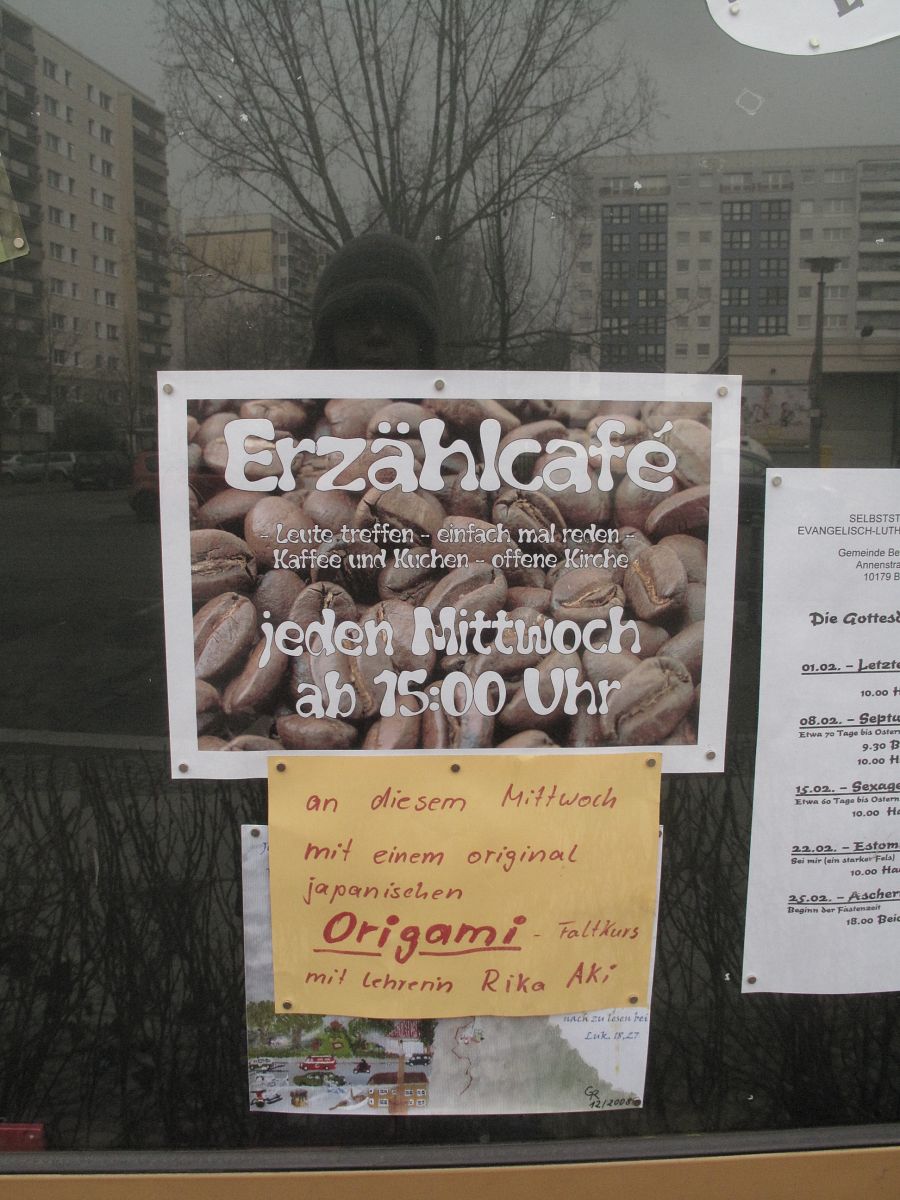 Erzählcafé
- Leute treffen - einfach mal reden -
Kaffee und Kuchen - offene Kirche
jeden Mittwoch
ab 15:00 Uhr
an diesem Mittwoch
mit einem original
japanischen
Origami - Faltkurs
mit Lehrerin Rika Aki
nach zu lesen bei
Luk. 18,27
GR
12/2008
SELBSTST
EVANGELISCH-LUTH
Gemeinde Be
Annenstra
10179 B
Die Gottesd
01.02. - Letzte
10.00 H
08.02. - Septu
Etwa 70 Tage bis Ostern
9.30 B
10.00 H
15.02. - Sexage
Etwa 60 Tage bis Ostern
10.00 Ha
22.02. - Estom
Bei mir (ein starker Fels)
10.00 Hau
25.02. - Ascherm
Beginn der Fastenzeit
18.00 Beic